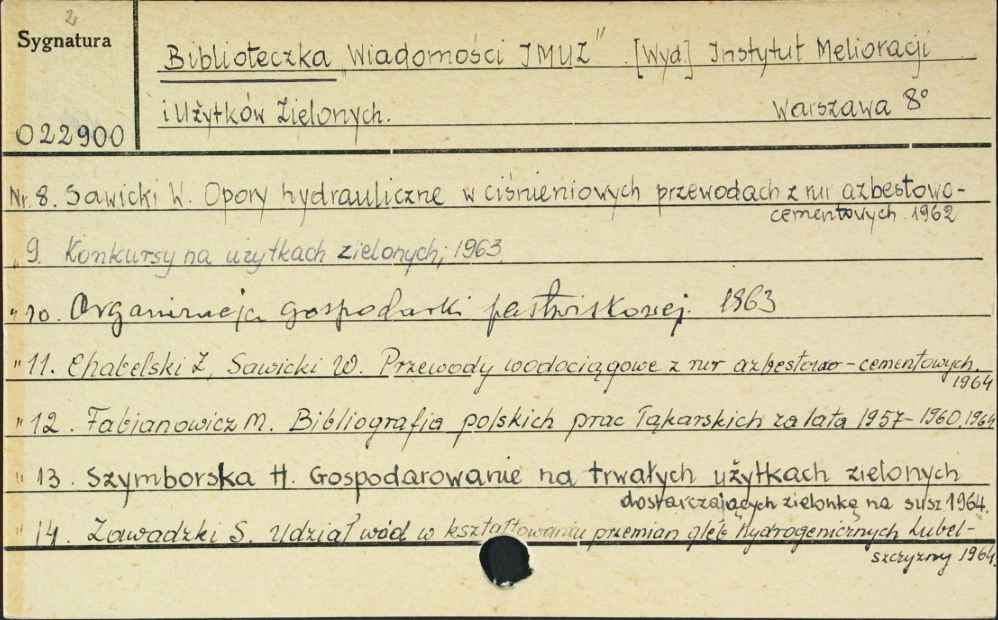 2
Sygnatura
Biblioteczka „Wiadomości IMUZ". [Wyd.] Instytut Melioracji
i Użytków Zielonych. Warszawa 8°
022900
Nr. 8. Sawicki W. Opory hydrauliczne w ciśnieniowych przewodach z rur azbestowo-
cementowych. 1962
" 9. Konkursy na użytkach zielonych; 1963
" 10. Organizacja gospodarki pastwiskowej. 1963
" 11. Chabelski Z, Sawicki W. Przewody wodociągowe z rur azbestowo-cementowych.
1964
" 12. Fabjanowicz M. Bibliografia polskich prac łąkarskich za lata 1957-1960. 1964
" 13. Szymborska H. Gospodarowanie na trwałych użytkach zielonych
dostarczających zielonkę na susz 1964.
" 14. Zawadzki S. Udział wód w kształtowaniu przemian gleb hydrogenicznych Lubel-
szczyzny 1964.